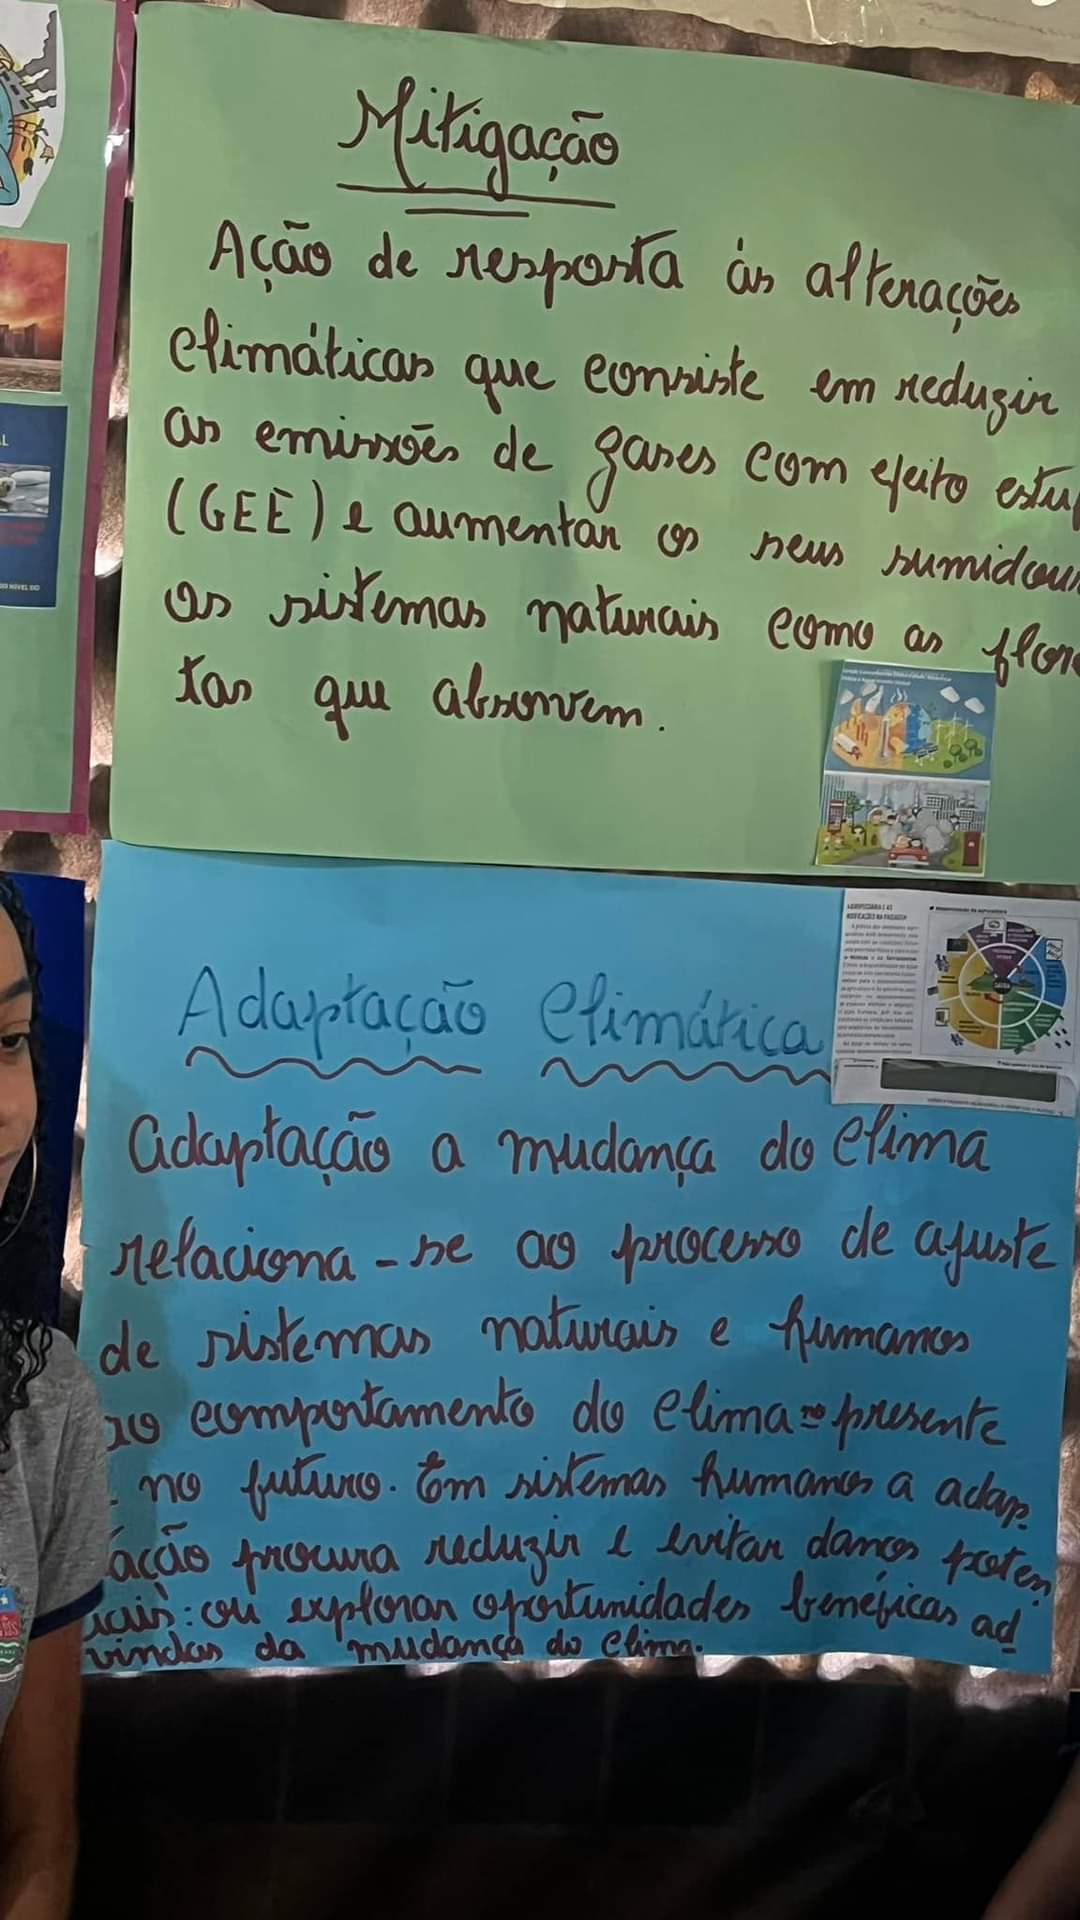 Mitigação
Ação de resposta às alterações
climáticas que consiste em reduzir
as emissões de gases com efeito estu
(GEE) e aumentar os seus sumidou
os sistemas naturais como as flores
tas que absorvem.
Adaptação Climática
adaptação a mudança do clima
relaciona-se ao processo de ajuste
de sistemas naturais e humanos
ao comportamento do clima no presente
no futuro. Em sistemas humanos a adap
tação procura reduzir e evitar danos poten
ciais: ou explorar oportunidades benéficas ad
vindas da mudança do clima.
AGROPECUÁRIA E AS
MODIFICAÇÕES NA PAISAGEM